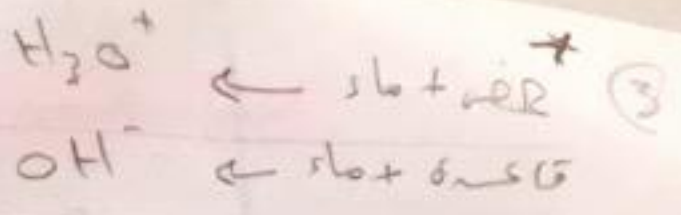 ③ * حمض + ماء ← H₃O⁺
قاعدة + ماء ← OH⁻